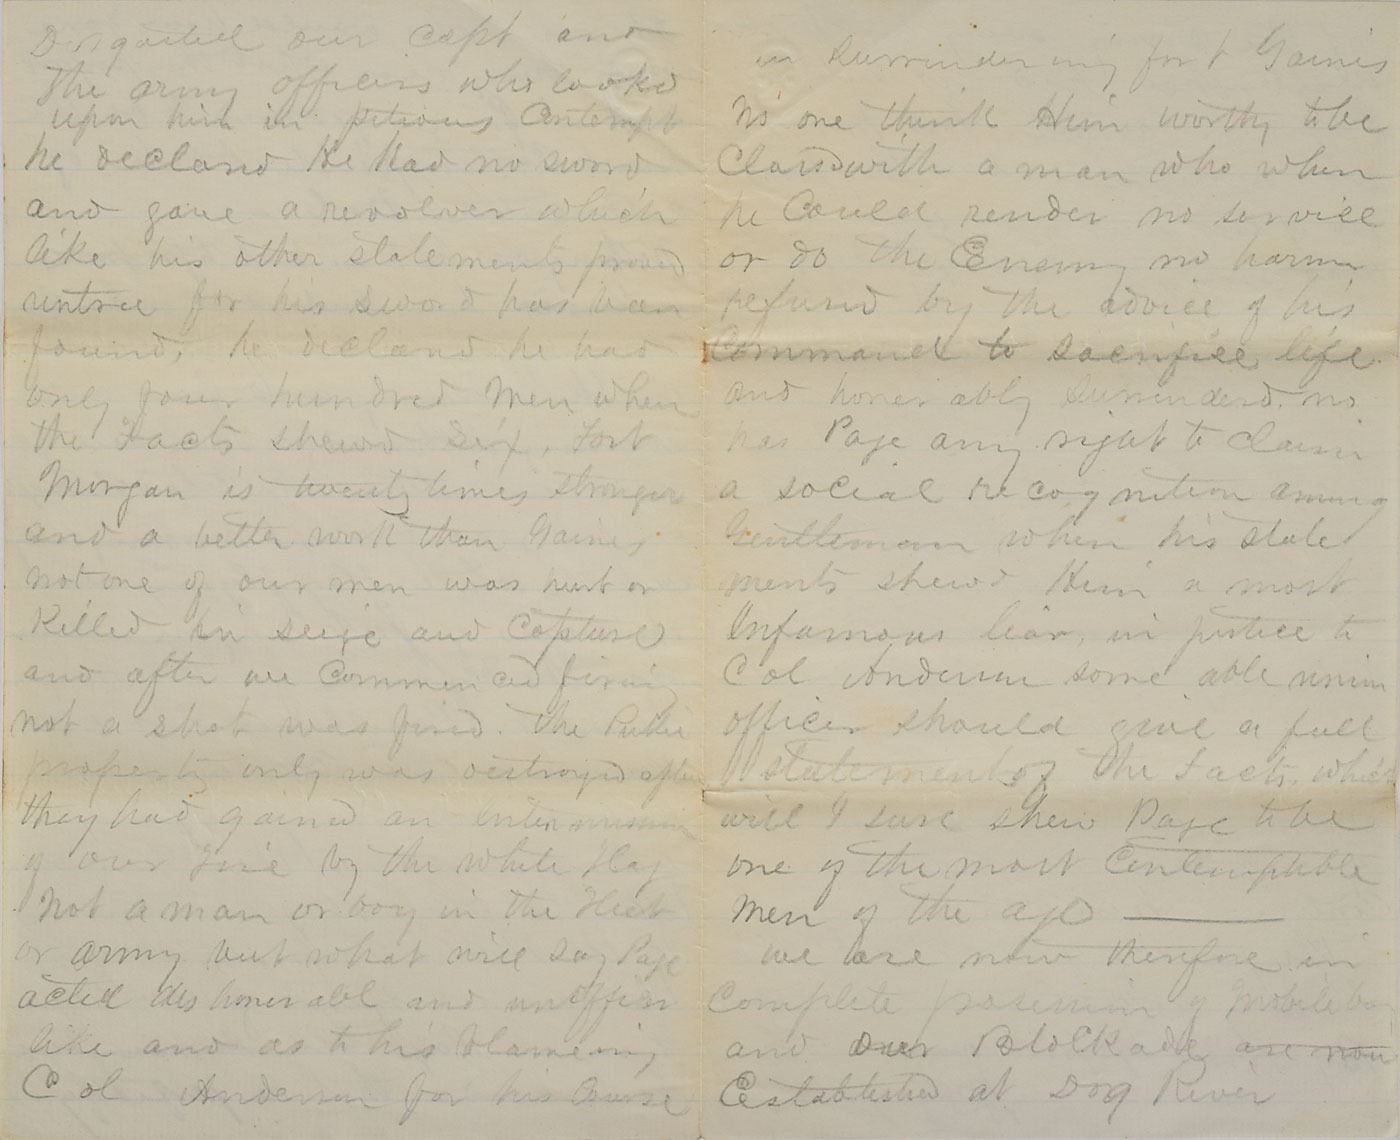 Disgusted our capt and
the army officers who looked
upon him in pitious Contempt
he declard He had no sword
and gave a revolver which
like his other statements proved
untrue for his sword has been
found, he declard he had
only four hundred Men when
the Facts shewd Six, Fort
Morgan is twenty times stronger
and a better work than Gaines
not one of our men was hurt or
Killed in seige and Capture
and after we Commenced firing
not a shot was fired. The Public
property only was destroyed after
they had gained an intermission
of our Fire by the white Flag
Not a man or boy in the Fleet
or army but what will say Page
acted dishonerabl and unofficer
like and as to his blameing
Col Anderson for his Course
in surrendering fort Gaines
No one think Him worthy to be
Classd with a man who when
he Could render no service
or do the Enemy no harm
refused by the advice of his
Command to sacrifice life
and honerably surrenderd. no
has Page any right to claim
a social recognition among
Gentlemen when his state
ments shewd Him a most
Infamous liar, in justice to
Col Anderson some able union
officer should give a full
statement of the Facts, which
will I sure shew Page to be
one of the most Contemptable
Men of the age
we are now therefore in
Complete possession of Mobile bay
and our Blockade are now
Established at Dog River